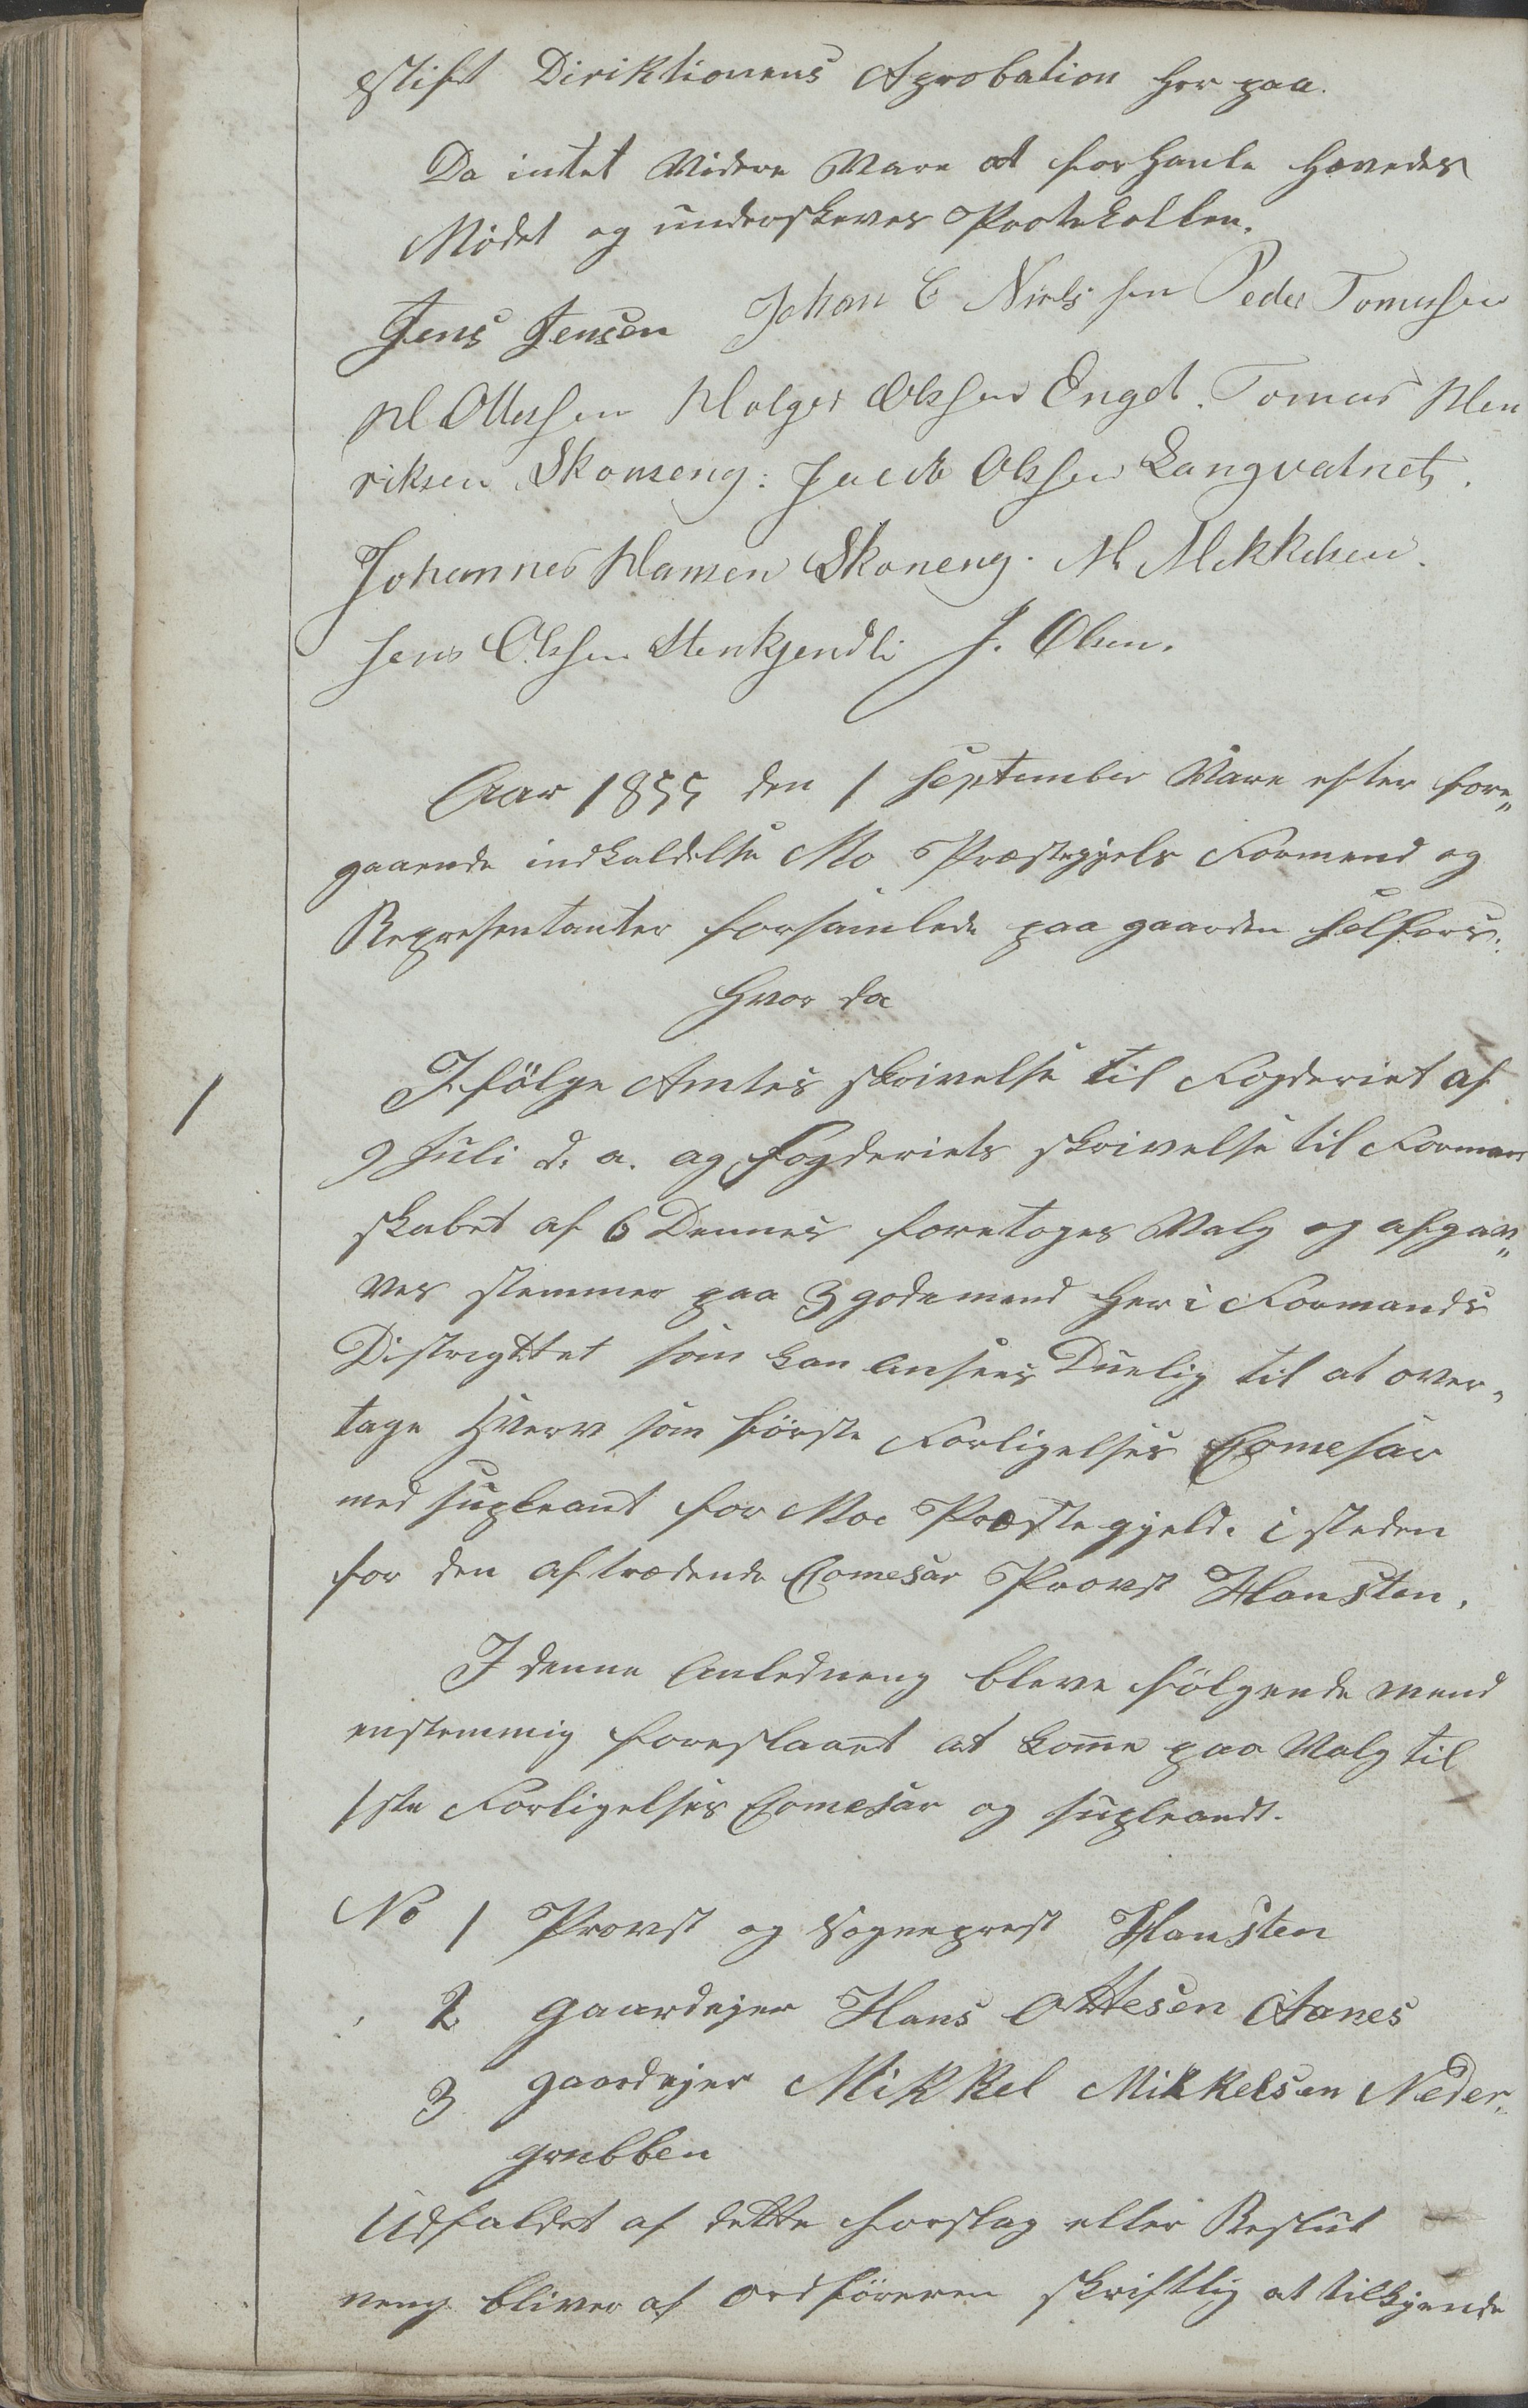 Stift Diriktionens Aprobation her paa.
Da intet Videre Vare at forhanle Hævedes
Mødet og underskeves Protokollen.
Jens Jensen Johan C Nielssen Peder Tomessen
H Ottessen Holger Olssen Enget. Tomas Hen
riksen Skonseng: Jacob Olssen Langvatnet.
Johannes Hansen Skoneng. M Mikkelsen.
Jens Olssen Stenkjendli J. Olsen.
Aar 1855 den 1 September Vare efter fore„
gaaende indkaldelse Mo Præstegjels Formend og
Representanter forsamlede paa gaarden Selfors:
Hvor da
1 Ifölge Amtes skrivelse til Fogderiet af
9 Juli d. a. og Fogderiets skrivelse til Forman
skabet af 6 Dennes foretoges Valg og afgav„
ves stemmer paa 3 godemend her i Formands
Distrigttet som kan Ansees Duelig til at over„
tage Hverv som förste Forligelses Comesar
med supleant for Moe Præstegjeld. i steden
for den aftrædende Comesar Provst Hansten.
I denne Anledneng bleve fölgende mend
enstemmig foreslaaet at komme paa Valg til
1ste Forligelses Comesar og supleandt.
No 1 Provst og Sogneprest Hansten
2 gaardejer Hans Ottesen Aanes
3 gaardejer Mikkel Mikkelsen Neder„
grubben
Udfaldet af dette forslag eller Beslut
neng bliver af ordföreren skriftlig at tilkjende